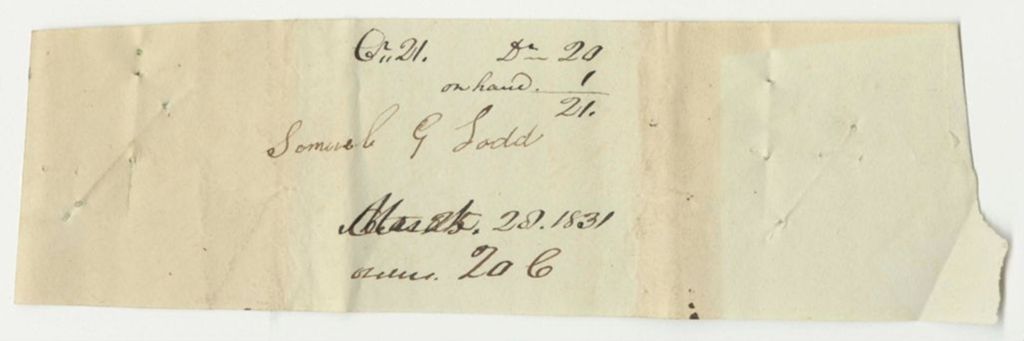 Cr. 21. Dr 20
on hand. 1
21.
Samuel G Ladd
March. 28. 1831
20 C